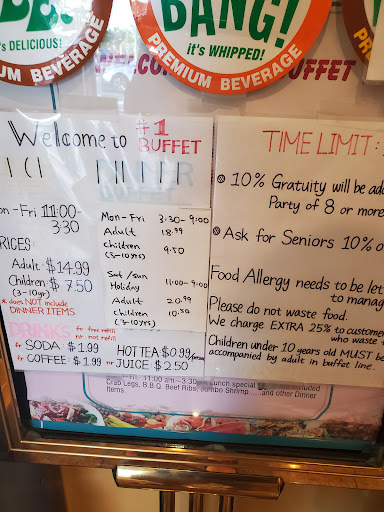 's DELICIOUS!
UM BEVERAGE
BANG!
it's WHIPPED!
PREMIUM BEVERAGE
UFFET
Welcome to #1
BUFFET
Mon - Fri 11:00-
3:30
RICES:
Adult $14.99
Children $7.50
(3-10yr)
* does NOT include
DINNER ITEMS
DRINKS
fr free refill
nr not refill
fr SODA: $1.99
fr COFFEE: $1.99
HOT TEA $0.99/person
nr JUICE $2.50
Mon - Fri 3:30-9:00
Adult 18.99
children 9.50
(3-10yrs)
Sat/sun
Holiday 11:00-9:00
Adult 20.99
children 10.50
(3-10yrs)
TIME LIMIT:
10% Gratuity will be ad
Party of 8 or more
Ask for Seniors 10% o
Food Allergy needs to be let
to manag
Please do not waste food.
We charge EXTRA 25% to custome
who waste
Children under 10 years old MUST be
accompanied by adult in buffet line.
Fri 11:00 am - 3:30 pm Lunch special
Crab Legs, B.B.Q. Beef Ribs, Jumbo Shrimp......and other Dinner
Items.